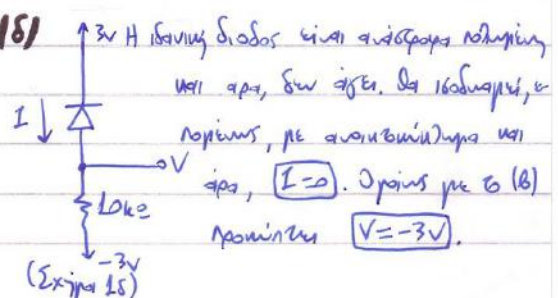 1δ) 3v Η ιδανική δίοδος είναι ανάστροφα πολωμένη
και άρα, δεν άγει. Θα ισοδυναμεί, ε-
I πομένως, με ανοικτοκύκλωμα και
V άρα, I=0. Ομοίως με το (β)
10kΩ προκύπτει V=-3V.
-3v
(Σχήμα 1δ)